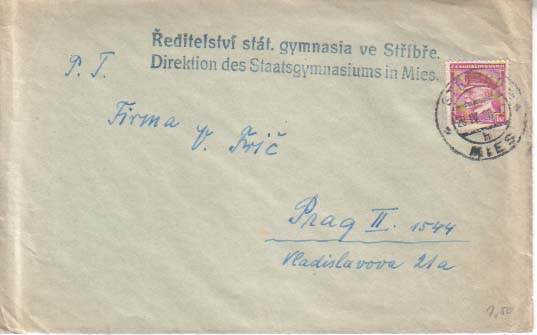 Ředitelství stát. gymnasia ve Stříbře.
Direktion des Staatsgymnasiums in Mies.
P. T.
Firma V. Frič
Prag II. 1544
Vladislavova 21a
MIES
1,50